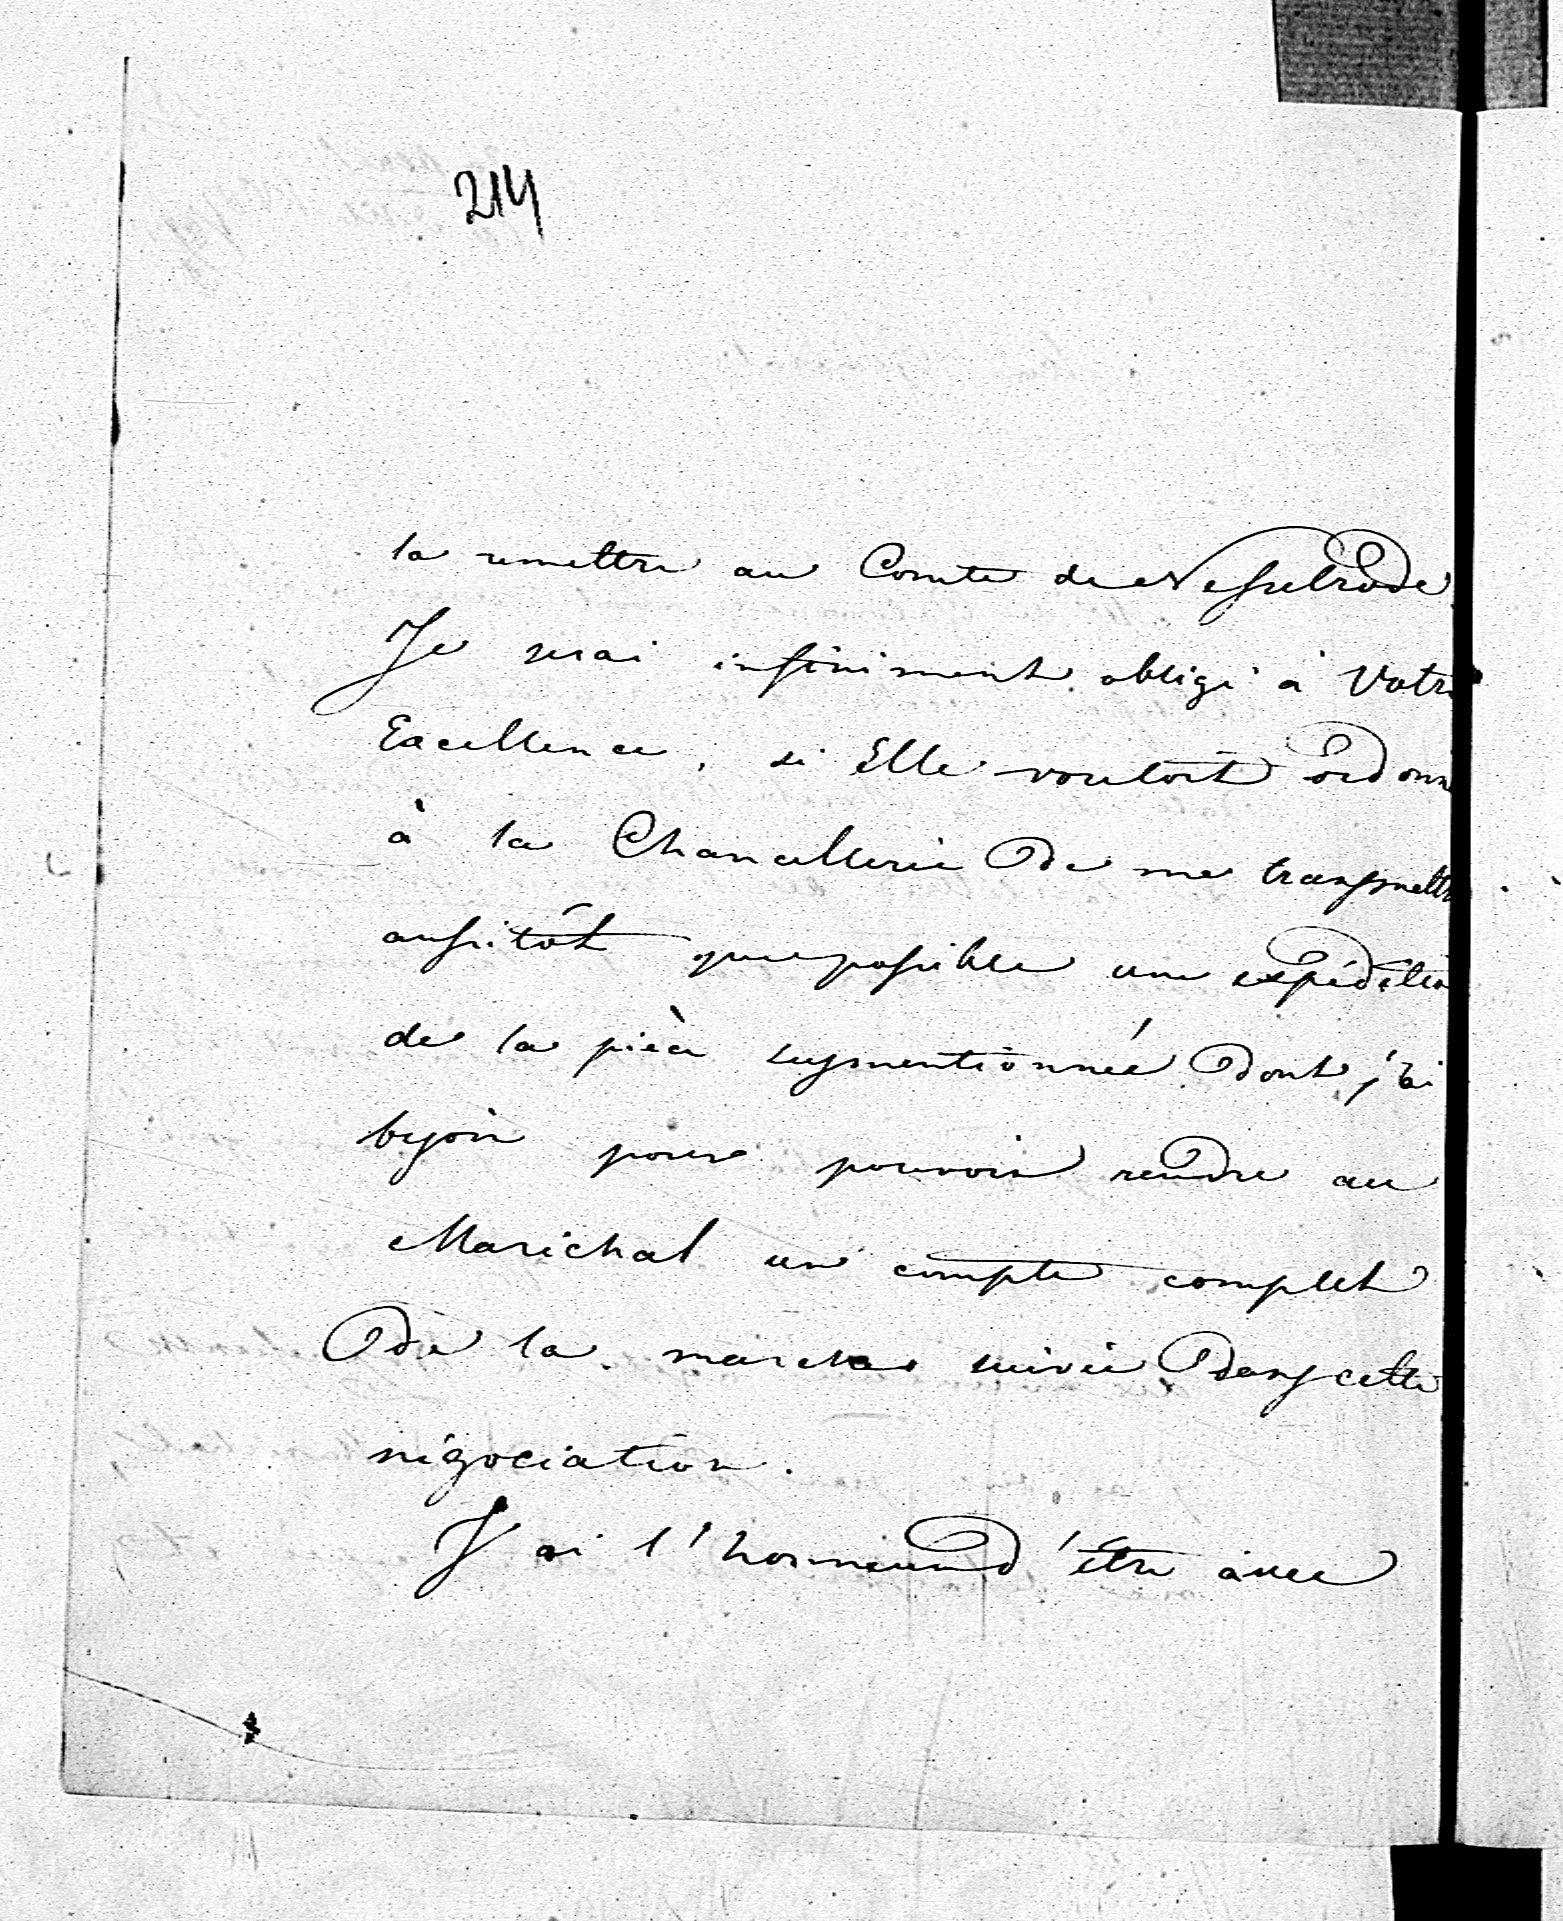 214
la remettre au Comte de Nesselrode
Je serai infiniment obligé à Votre
Excellence, si Elle vouloit ordonn
à la Chancellerie de me transmettr
aussitôt que possible une expéditio
de la pièce susmentionnée dont j'ai
besoin pour pouvoir rendre au
Maréchal un compte complet
de la marche suivie dans cette
négociation.
J'ai l'honneur d'être avec